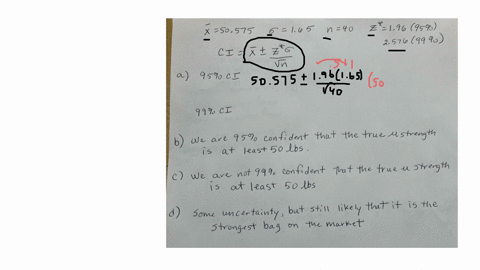 x̄ = 50.575 σ = 1.65 n = 40 z* = 1.96 (95%)
2.576 (99%)
CI = x̄ ± z*σ/√n
a) 95% CI 50.575 ± 1.96(1.65)/√40 (50
99% CI
b) We are 95% confident that the true μ strength
is at least 50 lbs.
c) We are not 99% confident that the true μ strength
is at least 50 lbs
d) Some uncertainty, but still likely that it is the
strongest bag on the market